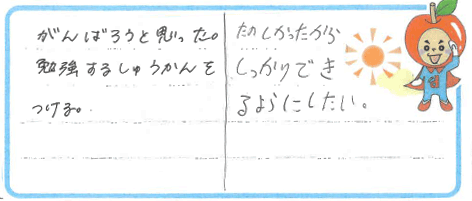 がんばろうと思った。
勉強するしゅうかんを
つける。
たのしかったから
しっかりでき
るようにしたい。